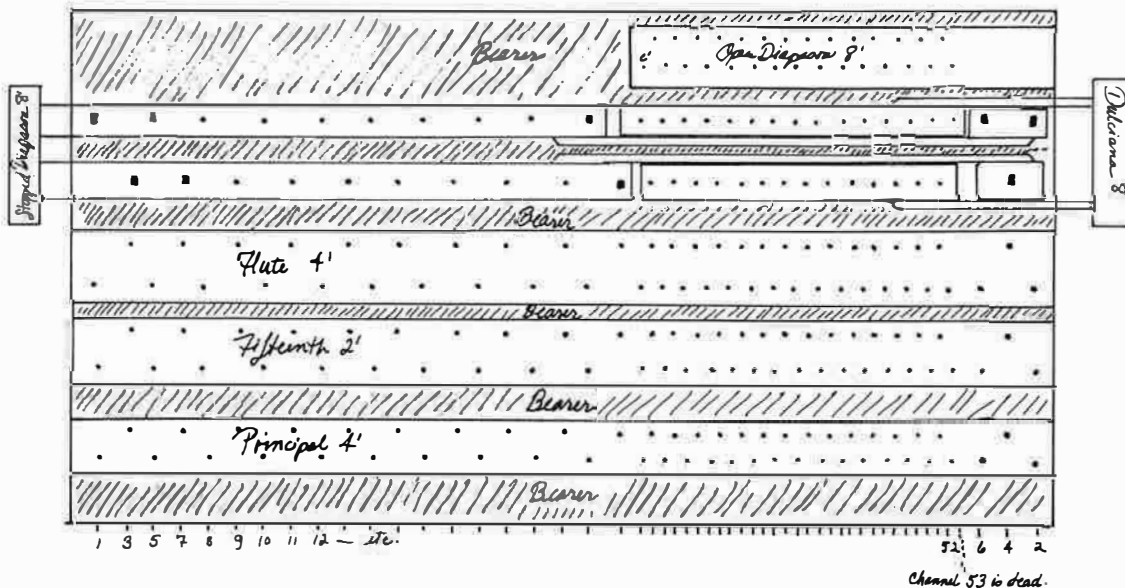 Bearer
c' Open Diapason 8'
Stopped Diapason 8'
Dulciana 8
Bearer
Flute 4'
Bearer
Fifteenth 2'
Bearer
Principal 4'
Bearer
1 3 5 7 8 9 10 11 12 — etc. 52 6 4 2
Channel 53 is dead.